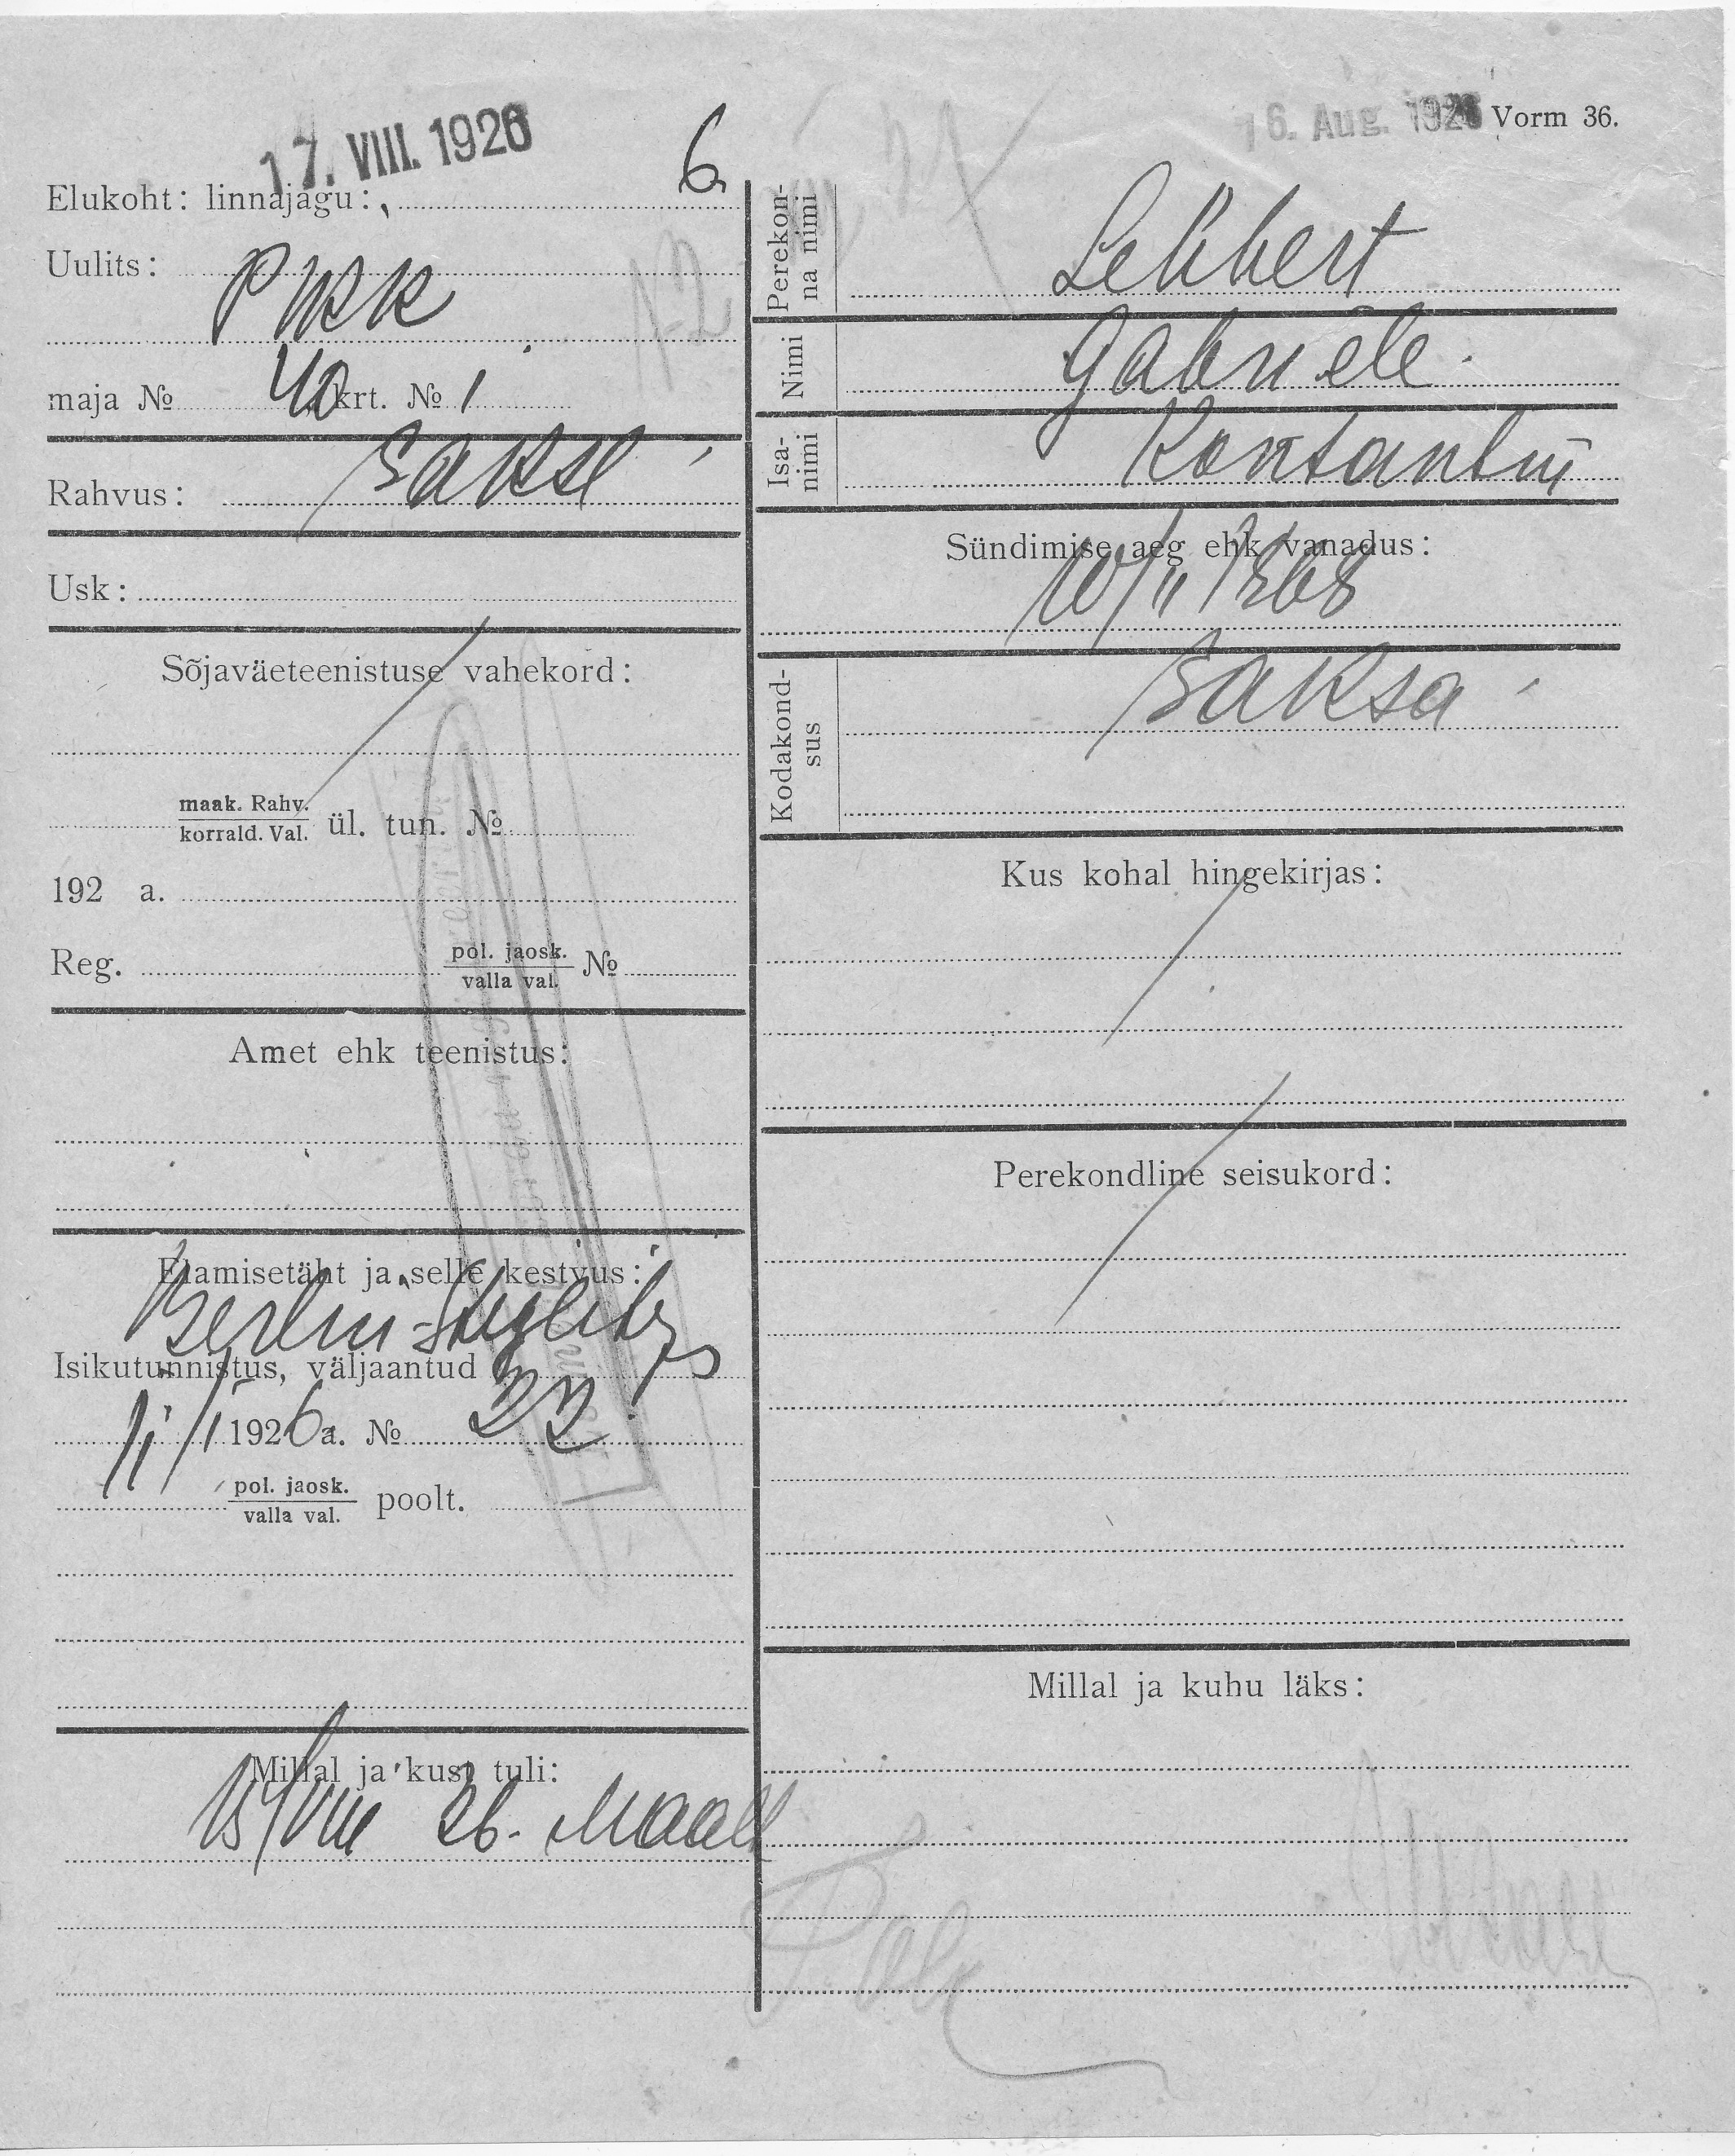 17. VIII. 1926
Elukoht: linnajagu: 6
Uulits: Pikk
maja № 40 krt. № 1
Rahvus: Sakse
Usk:
Sõjaväeteenistuse vahekord:
maak. Rahv.
korrald. Val. ül. tun. №
192 a.
Reg. pol. jaosk.
valla val. №
Amet ehk teenistus:
Elamisetäht ja selle kestvus:
Berlin-Steglitz
Isikutunnistus, väljaantud
1926 a. № 22
pol. jaosk.
valla val. poolt.
Millal ja kust tuli:
15/VIII 26. Maalt
16. Aug. 1926 Vorm 36.
Perekon-
na nimi
Nimi Gabriele
Isa-
nimi Konstantin
Sündimise aeg ehk vanadus:
10/II 1868
Kodakond-
sus Saksa
Kus kohal hingekirjas:
Perekondline seisukord:
Millal ja kuhu läks: